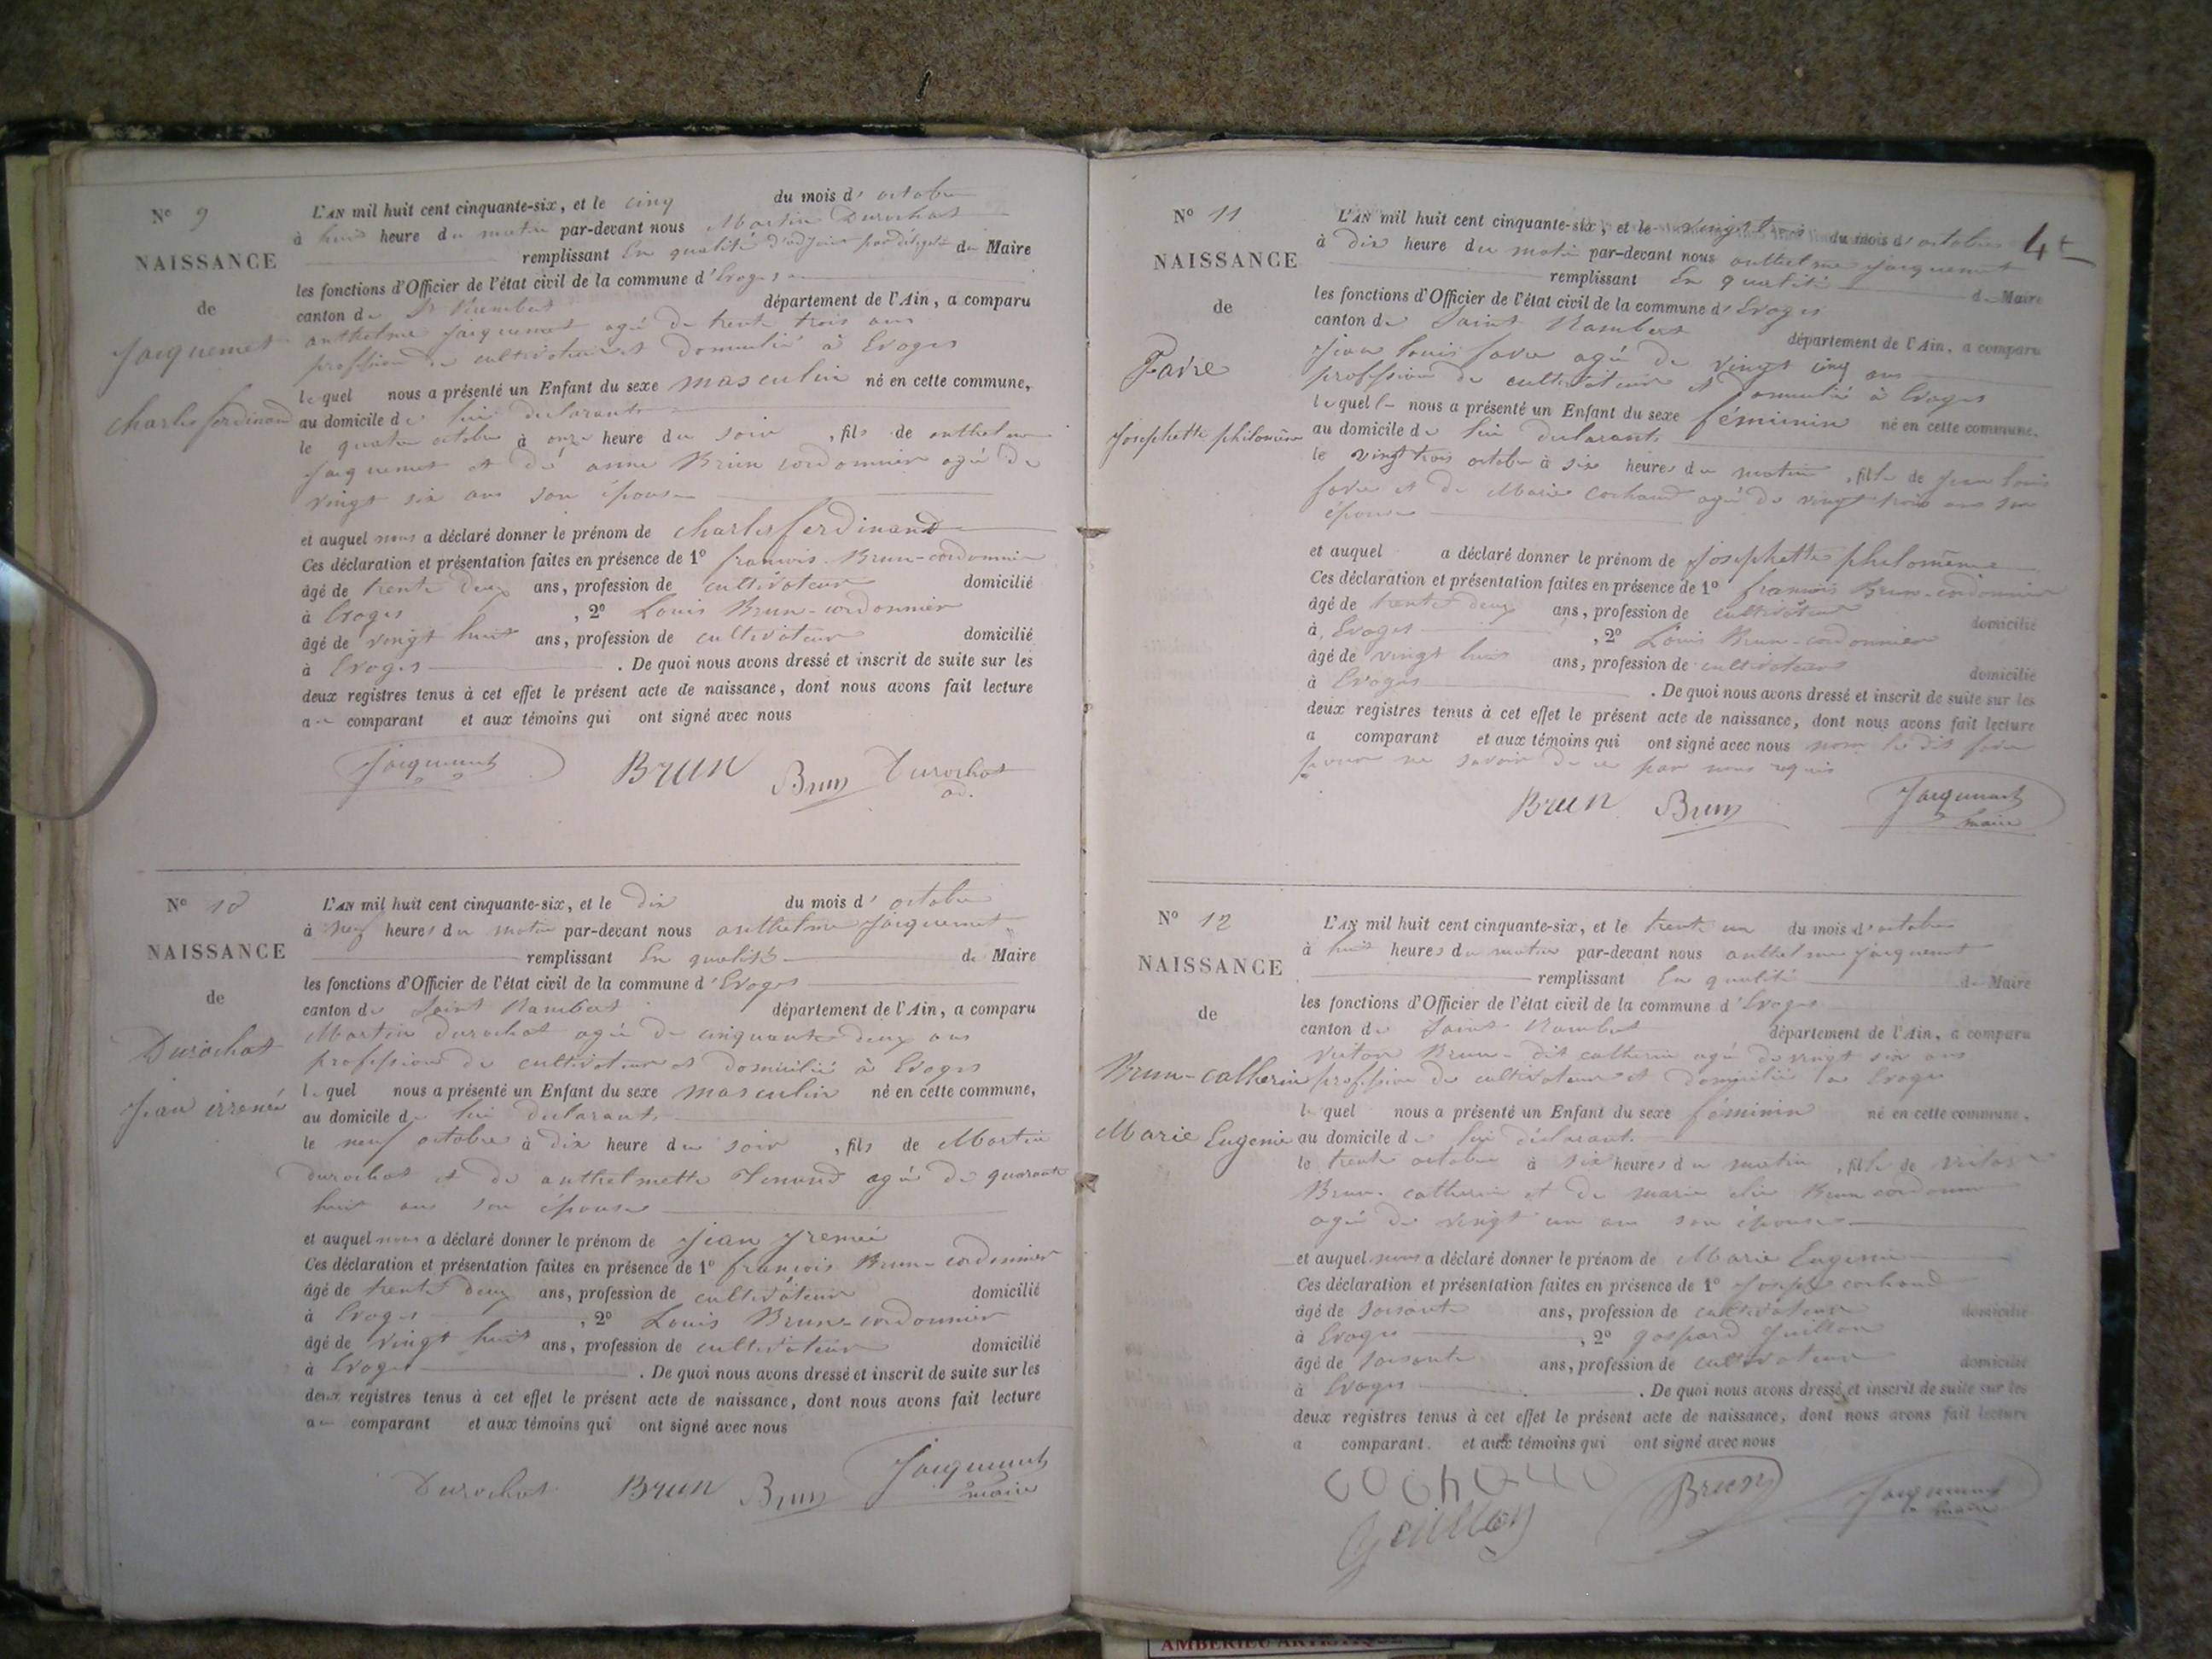 N° 9
NAISSANCE
de
Jacquemet
Charles ferdinand
L'AN mil huit cent cinquante-six, et le cinq du mois d' octobre
à huit heure du matin par-devant nous Martin Durochat
remplissant En qualité d'adjoint par délégation du Maire
les fonctions d'Officier de l'état civil de la commune d'Evoges
canton de St Rambert département de l'Ain, a comparu
anthelme Jacquemet agé de trente trois ans
profession de cultivateur et domicilié à Evoges
lequel nous a présenté un Enfant du sexe masculin né en cette commune,
au domicile de lui declarant
le quatre octobre à onze heure du soir, fils de anthelme
Jacquemet et de anne Brun cordonnier agé de
vingt six ans son épouse
et auquel nous a déclaré donner le prénom de charles ferdinand
Ces déclaration et présentation faites en présence de 1° francois Brun-cordonnier
âgé de trente deux ans, profession de cultivateur domicilié
à Evoges, 2° Louis Brun-cordonnier
âgé de vingt huit ans, profession de cultivateur domicilié
à Evoges. De quoi nous avons dressé et inscrit de suite sur les
deux registres tenus à cet effet le présent acte de naissance, dont nous avons fait lecture
au comparant et aux témoins qui ont signé avec nous
Jacquemet Brun Brun Durochat
ad.
N° 10
NAISSANCE
de
Durochat
Jean irrenée
L'AN mil huit cent cinquante-six, et le dix du mois d' octobre
à neuf heures du matin par-devant nous anthelme Jacquemet
remplissant En qualité de Maire
les fonctions d'Officier de l'état civil de la commune d'Evoges
canton de Saint Rambert département de l'Ain, a comparu
Martin durochat agé de cinquante deux ans
profession de cultivateur et domicilié à Evoges
lequel nous a présenté un Enfant du sexe masculin né en cette commune,
au domicile de lui declarant
le neuf octobre à dix heure du soir, fils de Martin
durochat et de anthelmette agé de quarante
huit ans son épouse
et auquel nous a déclaré donner le prénom de Jean
Ces déclaration et présentation faites en présence de 1° françois Brun-cordonnier
âgé de trente deux ans, profession de cultivateur domicilié
à Evoges, 2° Louis Brun-cordonnier
âgé de vingt huit ans, profession de cultivateur domicilié
à Evoges. De quoi nous avons dressé et inscrit de suite sur les
deux registres tenus à cet effet le présent acte de naissance, dont nous avons fait lecture
au comparant et aux témoins qui ont signé avec nous
Durochat Brun Brun Jacquemet
maire
4
N° 11
NAISSANCE
de
Favre
Josephette philomène
L'AN mil huit cent cinquante-six, et le vingt trois du mois d'octobre
à dix heure du matin par-devant nous anthelme Jacquemet
remplissant En qualité de Maire
les fonctions d'Officier de l'état civil de la commune d'Evoges
canton de Saint Rambert département de l'Ain, a comparu
Jean louis favre agé de vingt cinq ans
profession de cultivateur et domicilié à Evoges
lequel nous a présenté un Enfant du sexe féminin né en cette commune.
au domicile de lui declarant
le vingt trois octobre à six heures du matin, fille de Jean louis
favre et de Marie cochaud agé de vingt trois ans son
épouse
et auquel a déclaré donner le prénom de Josephette philomène
Ces déclaration et présentation faites en présence de 1° francois Brun-cordonnier
âgé de trente deux ans, profession de cultivateur
à Evoges, 2° Louis Brun-cordonnier domicilié
âgé de vingt huit ans, profession de cultivateur
à Evoges domicilié. De quoi nous avons dressé et inscrit de suite sur les
deux registres tenus à cet effet le présent acte de naissance, dont nous avons fait lecture
a comparant et aux témoins qui ont signé avec nous non le dit favre
pour ne savoir de ce par nous requis
Brun Brun Jacquemet
maire
N° 12
NAISSANCE
de
Brun-catherin
Marie Eugenie
L'AN mil huit cent cinquante-six, et le trente un du mois d'octobre
à huit heures du matin par-devant nous anthelme Jacquemet
remplissant En qualité de Maire
les fonctions d'Officier de l'état civil de la commune d'Evoges
canton de Saint Rambert département de l'Ain, a comparu
Brun-dit catherin agé de vingt six ans
profession de cultivateur et domicilié à Evoges
lequel nous a présenté un Enfant du sexe féminin né en cette commune.
au domicile de lui déclarant
le trente octobre à six heures du matin, fille de
Brun-catherin et de marie Brun cordonnier
agé de vingt un ans son épouse
et auquel nous a déclaré donner le prénom de Marie Eugenie
Ces déclaration et présentation faites en présence de 1° Joseph cochaud
âgé de soisante ans, profession de cultivateur domicilié
à Evoges, 2° gaspard Juillon
âgé de soisante ans, profession de cultivateur domicilié
à Evoges. De quoi nous avons dressé et inscrit de suite sur les
deux registres tenus à cet effet le présent acte de naissance, dont nous avons fait lecture
a comparant. et aux témoins qui ont signé avec nous
Brun Jacquemet
maire
AMBERIEU ARTISTIQUE